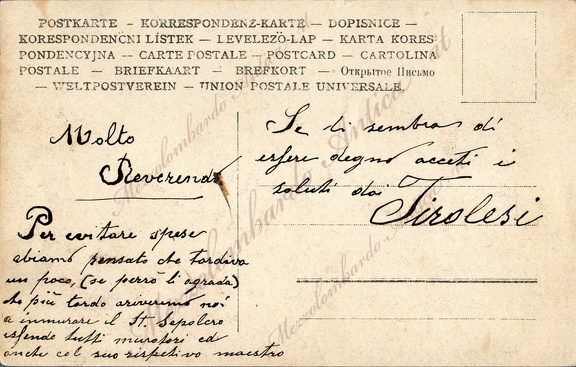 POSTKARTE – KORRESPONDENZ-KARTE – DOPISNICE –
KORESPONDENČNI LÍSTEK – LEVELEZÖ-LAP – KARTA KORES
PONDENCYJNA – CARTE POSTALE – POSTCARD – CARTOLINA
POSTALE – BRIEFKAART – BREFKORT – Открытое Письмо
– WELTPOSTVEREIN – UNION POSTALE UNIVERSALE.
Molto
Reverendo
Per evitare spese
abiamo pensato che tardiva
un poco, (se perrò li agrada)
che più tardo ariveremo noi
a inmurare il St. Sepolcro
esfendo tutti muratori ed
anche col suo rispetivo maestro
Se li sembra di
esfere degno acceti i
saluti dai
Tirolesi
Mezzolombardo Antica